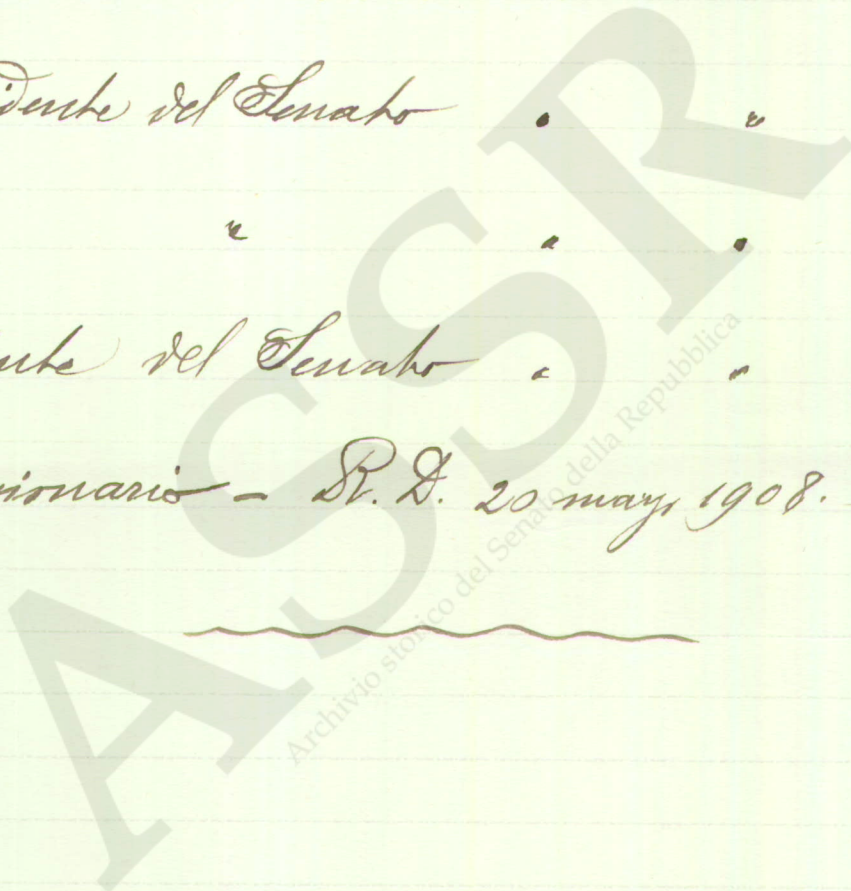 idente del Senato " "
" " "
ente del Senato " "
ionario - R. D. 20 mag. 1908.
ASSR
Archivio storico del Senato della Repubblica